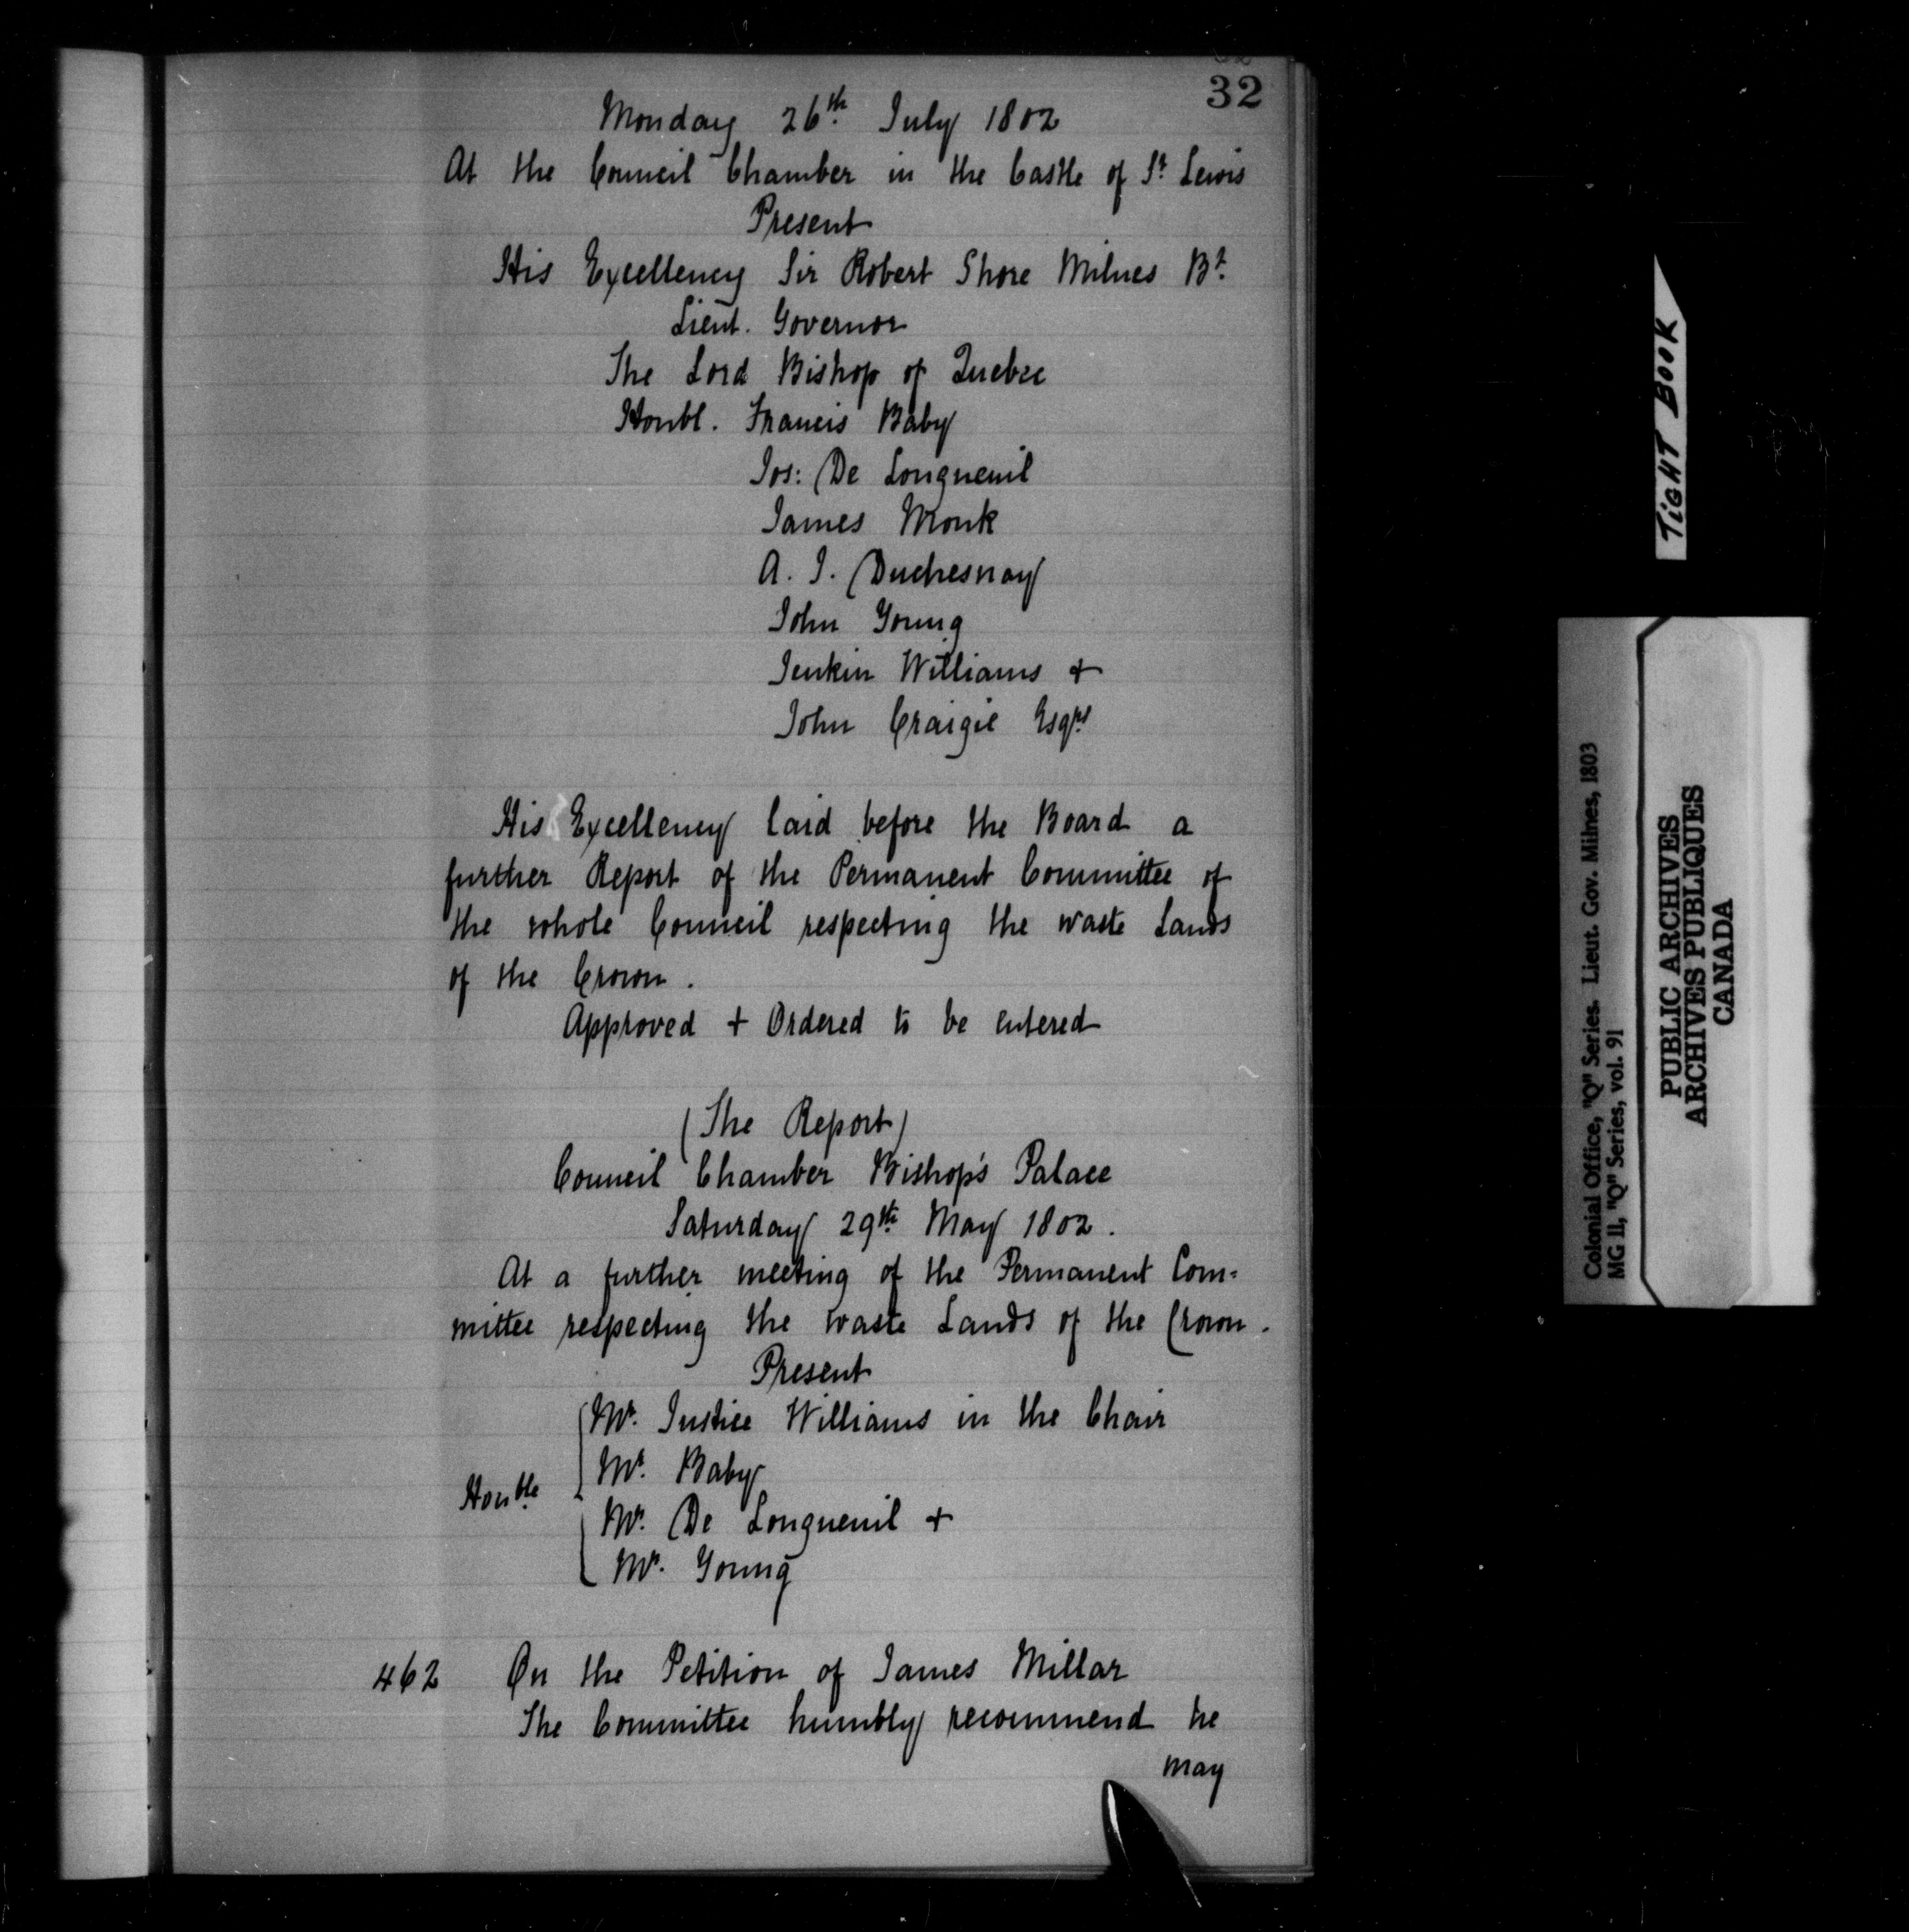 32
Monday 26th July 1802
At the Council Chamber in the Castle of St Lewis
Present
His Excellency Sir Robert Shore Milnes Bt
Lieut. Governor
The Lord Bishop of Quebec
Honbl. Francis Baby
Jos: De Longueuil
James Monk
A. J. Duchesnay
John Young
Jenkin Williams +
John Craigie Esqrs
His Excellency laid before the Board a
further Report of the Permanent Committee of
the whole Council respecting the waste Lands
of the Crown.
Approved + Ordered to be entered
(The Report)
Council Chamber Bishop's Palace
Saturday 29th May 1802.
At a further meeting of the Permanent Com=
mittee respecting the waste Lands of the Crown.
Present
Mr. Justice Williams in the Chair
Mr. Baby
Honble
Mr. De Longueuil +
Mr. Young
462 On the Petition of James Millar
The Committee humbly recommend he
may
TIGHT BOOK
Colonial Office, "Q" Series. Lieut. Gov. Milnes, 1803
MG 11, "Q" Series, vol. 91
PUBLIC ARCHIVES
ARCHIVES PUBLIQUES
CANADA